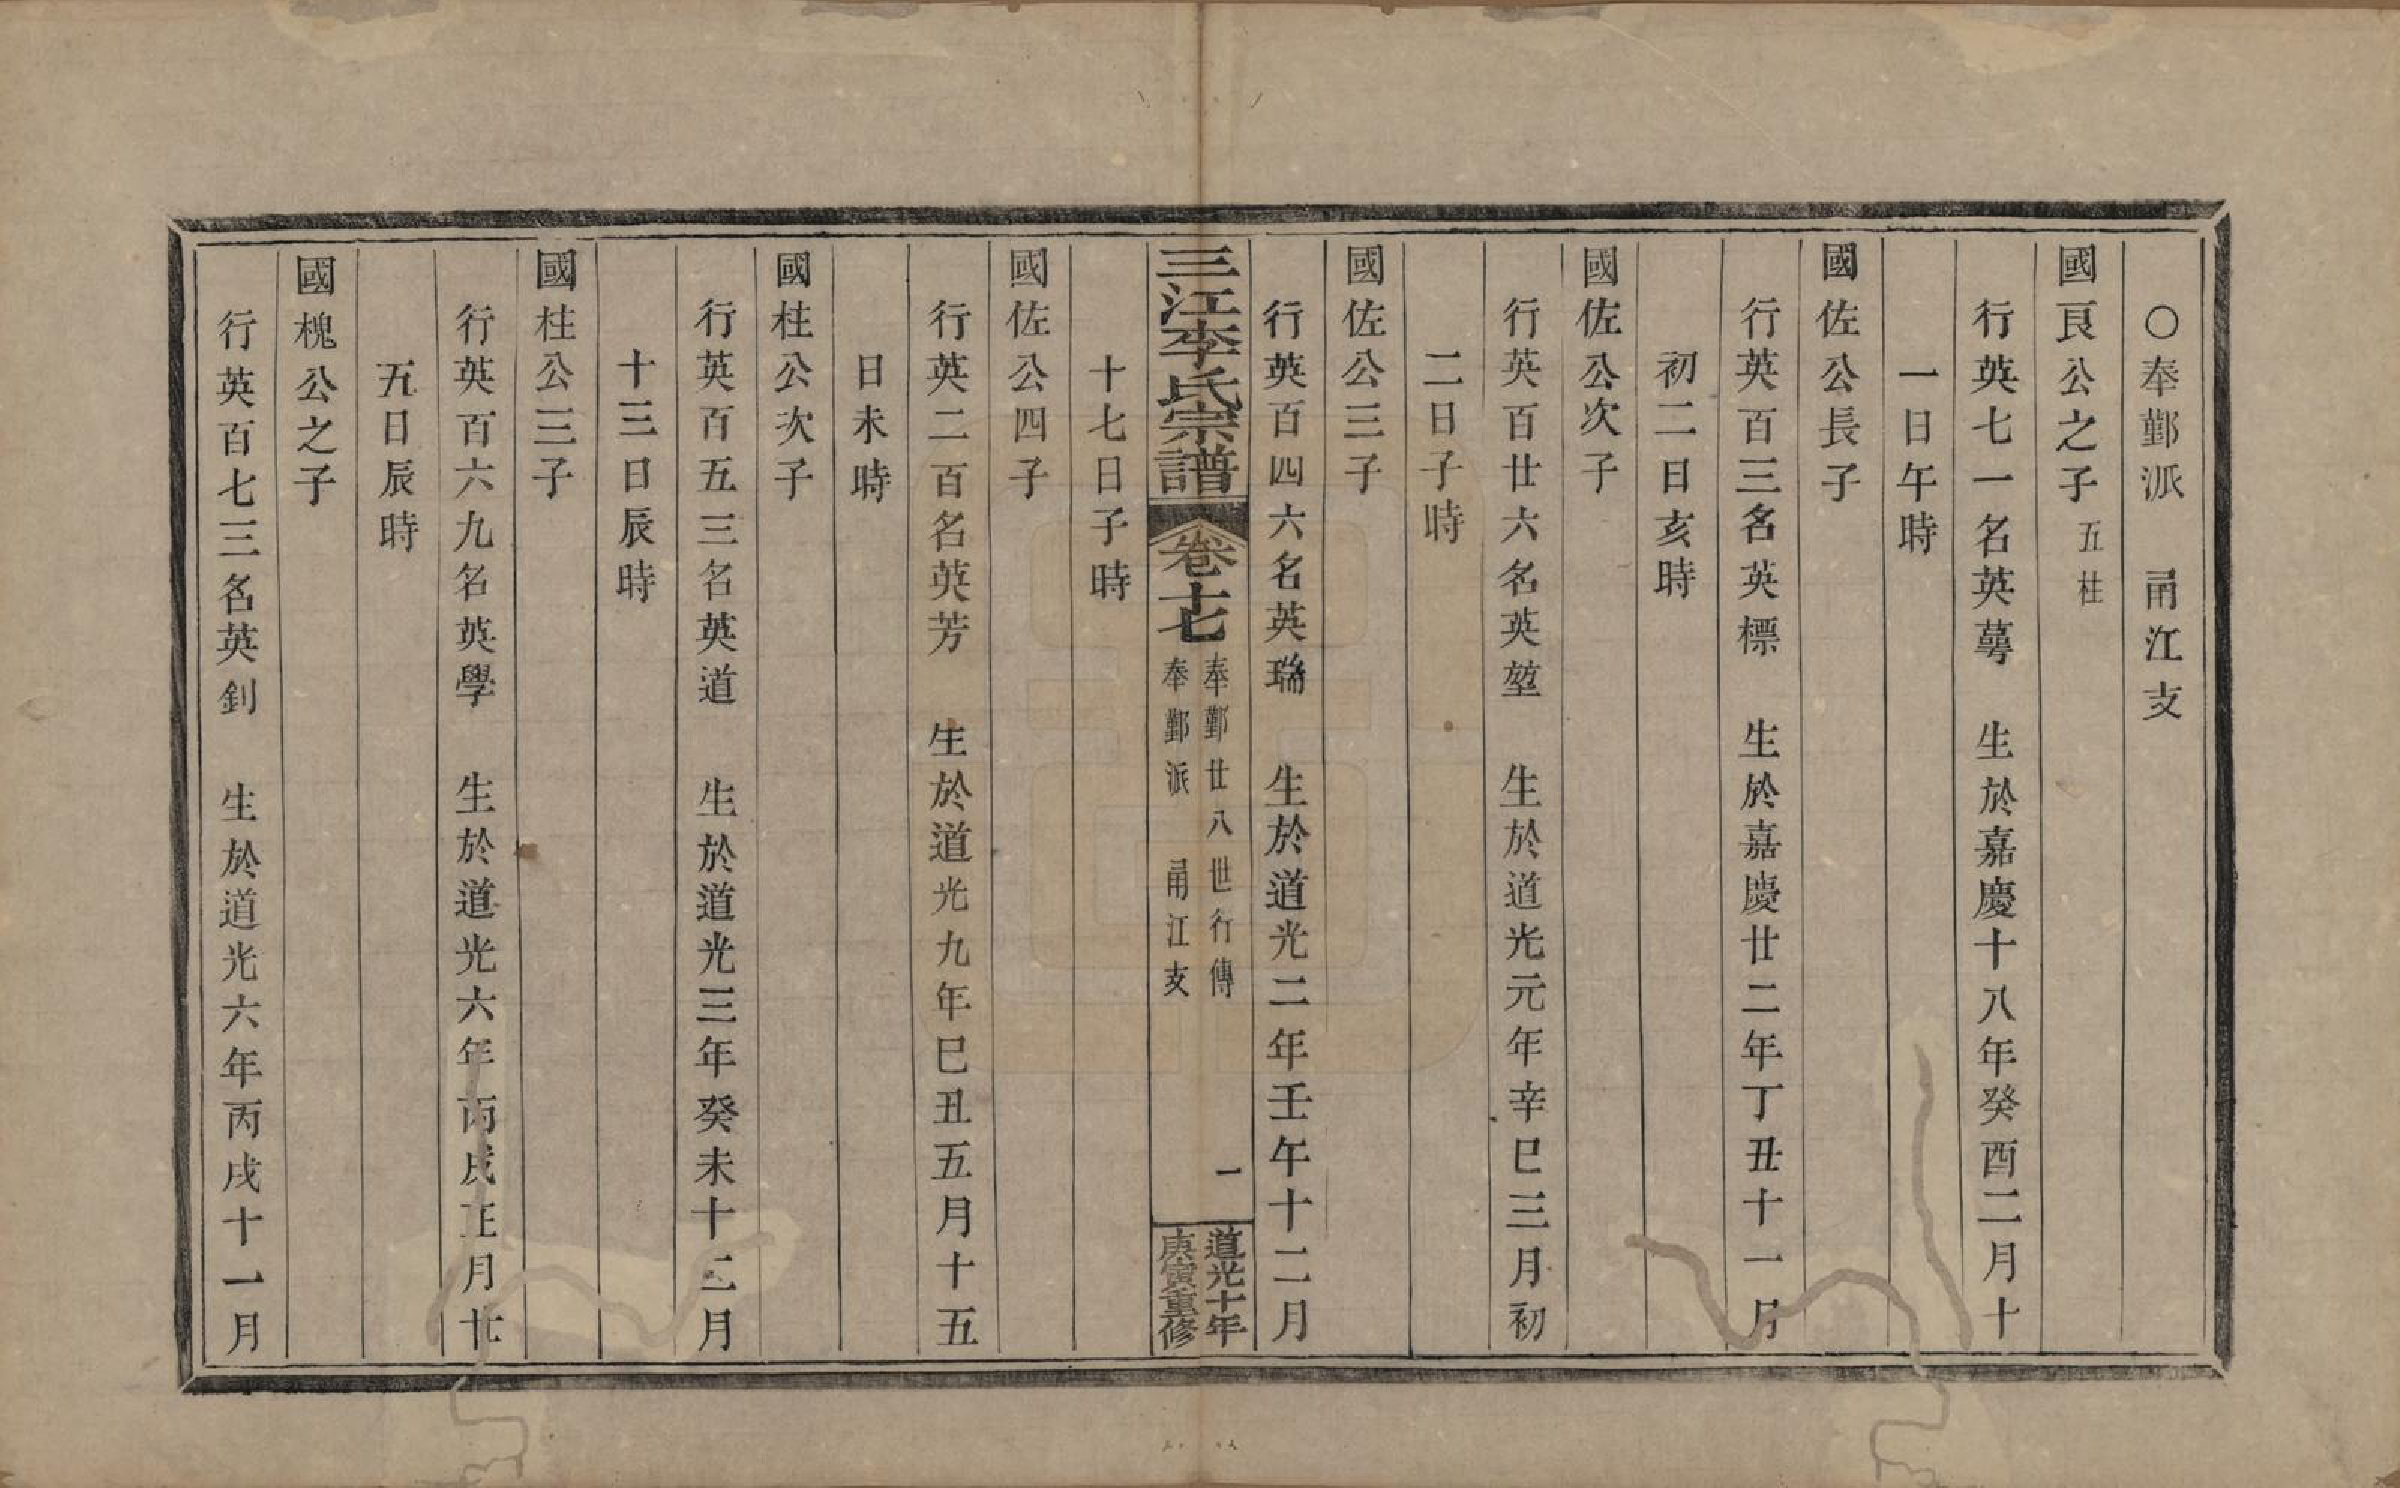 〇奉鄞派　甬江支
國艮公之子五柱
行英七一名英蕚　生於嘉慶十八年癸酉二月十
一日午時
國佐公長子
行英百三名英標　生於嘉慶廿二年丁丑十一月
初二日亥時
國佐公次子
行英百廿六名英堃　生於道光元年辛巳三月初
二日子時
國佐公三子
行英百四六名英瑞　生於道光二年壬午十二月
三江李氏宗譜
卷十七
奉鄞廿八世行傳
奉鄞派　甬江支
一
道光十年
庚寅重修
十七日子時
國佐公四子
行英二百名英芳　生於道光九年巳丑五月十五
日未時
國柱公次子
行英百五三名英道　生於道光三年癸未十二月
十三日辰時
國柱公三子
行英百六九名英學　生於道光六年丙戌正月廿
五日辰時
國槐公之子
行英百七三名英釗　生於道光六年丙戌十一月